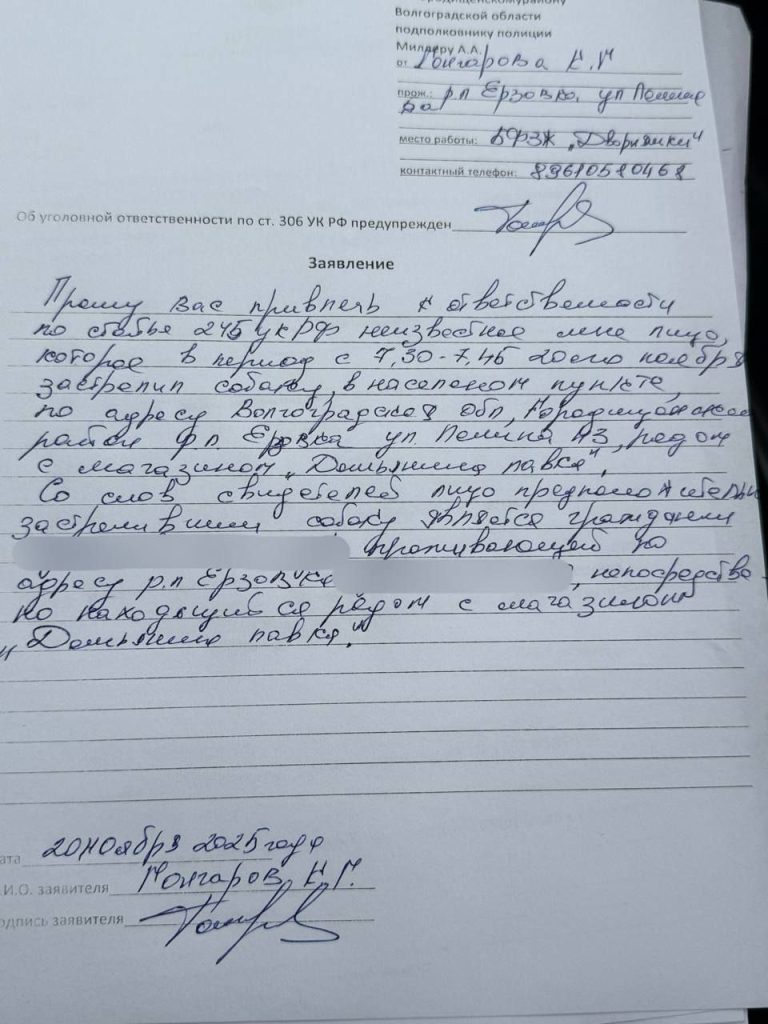 Волгоградской области
подполковнику полиции
Миллеру А.А.
от Гончарова К.Г
прож.: р.п Ерзовка, ул Ленина
место работы: БФЗЖ „Дворняжки"
контактный телефон: 89610580468
Об уголовной ответственности по ст. 306 УК РФ предупрежден
Заявление
Прошу Вас привлечь к ответственности
по статье 245 УК РФ неизвестное мне лицо,
которое в период с 7,30-7,45 20ого ноября
застрелил собаку, в населеном пункте,
по адресу Волгоградская обл, Городищенский
район р.п. Ерзовка ул Ленина рядом
с магазином „Домашняя лавка",
Со слов свидетелей лицо предположительно
застреливший собаку является гражданин
проживающей по
адресу р.п Ерзовка , непосредстве-
но находящийся рядом с магазином
„Домашняя лавка".
ата 20 ноября 2025 года
.И.О. заявителя Гончаров К.Г.
одпись заявителя